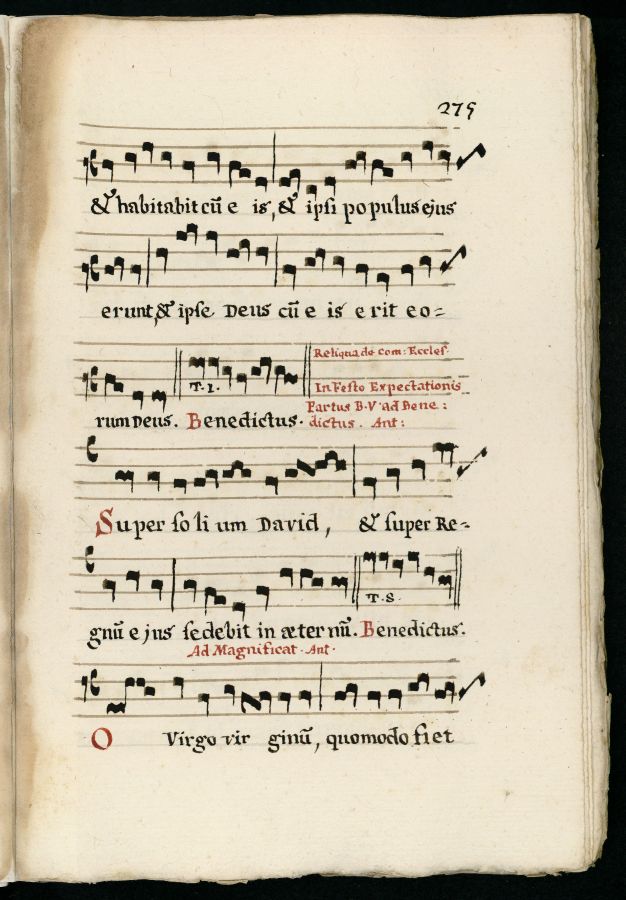 275
& habitabit cū e is, & ipsi populus ejus
erunt, & ipse Deus cū e is erit eo=
Reliqua de Com: Eccles.
T. I.
In Festo Expectationis
Partus B. V. ad Bene:
rum Deus. Benedictus. dictus. Ant:
Super solium David, & super Re=
T. 8.
gnū ejus sedebit in æternū. Benedictus.
Ad Magnificat. Ant.
O Virgo virginū, quomodo fiet